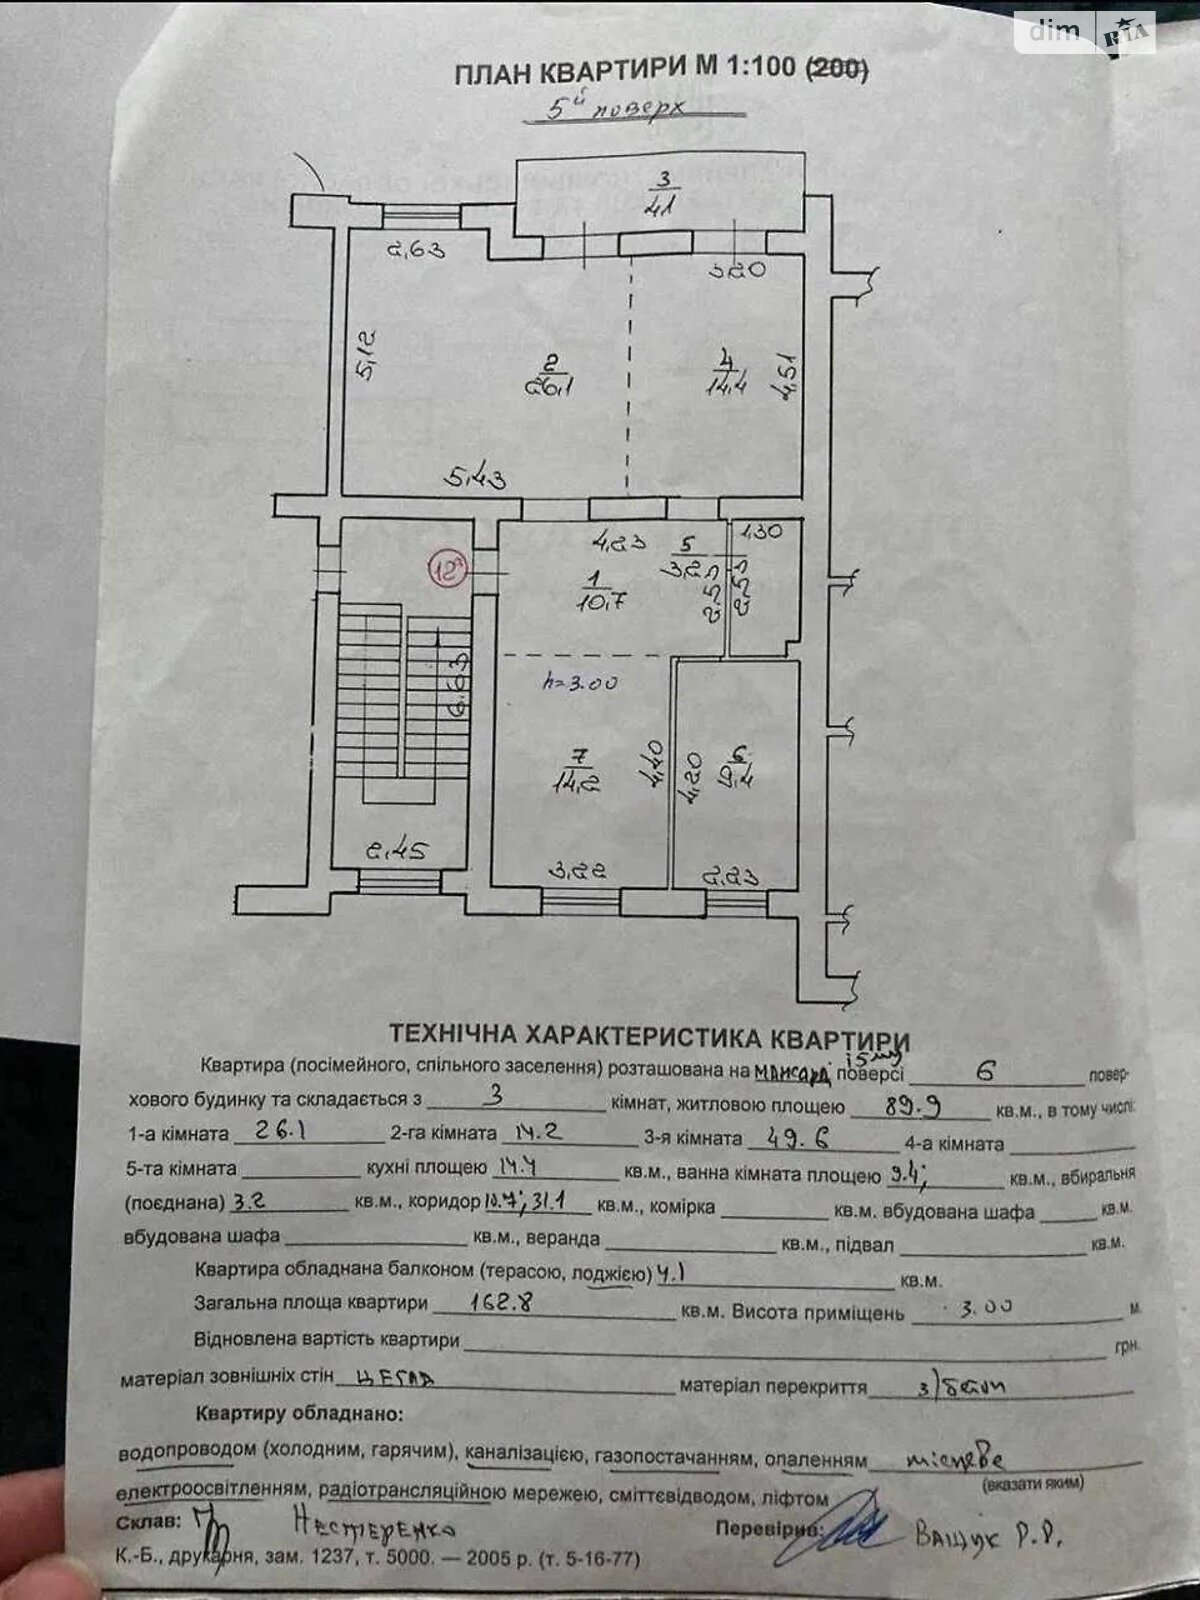 dim RIA
ПЛАН КВАРТИРИ М 1:100 (200)
5й поверх
3
4.1
2,63
3,20
5,12
2
26,1
4
14,4
4,51
5,43
4,23
5
3,2
1,30
12а
1
10,7
2,52
2,52
6.63
h=3.00
7
14,2
4,40
4,20
6
9,4
2,45
3,22
2,23
ТЕХНІЧНА ХАРАКТЕРИСТИКА КВАРТИРИ
і 5му
Квартира (посімейного, спільного заселення) розташована на мансард. поверсі 6 повер-
хового будинку та складається з 3 кімнат, житловою площею 89.9 кв.м., в тому числі:
1-а кімната 26.1 2-га кімната 14.2 3-я кімната 49.6 4-а кімната
5-та кімната кухні площею 14.4 кв.м., ванна кімната площею 9.4; кв.м., вбиральня
(поєднана) 3.2 кв.м., коридор 10.7; 31.1 кв.м., комірка кв.м. вбудована шафа кв.м.
вбудована шафа кв.м., веранда кв.м., підвал кв.м.
Квартира обладнана балконом (терасою, лоджією) 4.1 кв.м.
Загальна площа квартири 162.8 кв.м. Висота приміщень 3.00 м
Відновлена вартість квартири грн.
матеріал зовнішніх стін цегла матеріал перекриття з/бетон
Квартиру обладнано:
водопроводом (холодним, гарячим), каналізацією, газопостачанням, опаленням місцеве
(вказати яким)
електроосвітленням, радіотрансляційною мережею, сміттєвідводом, ліфтом
Склав: Нестеренко Перевірив: Ващук Р.Р.
К.-Б., друкарня, зам. 1237, т. 5000. — 2005 р. (т. 5-16-77)